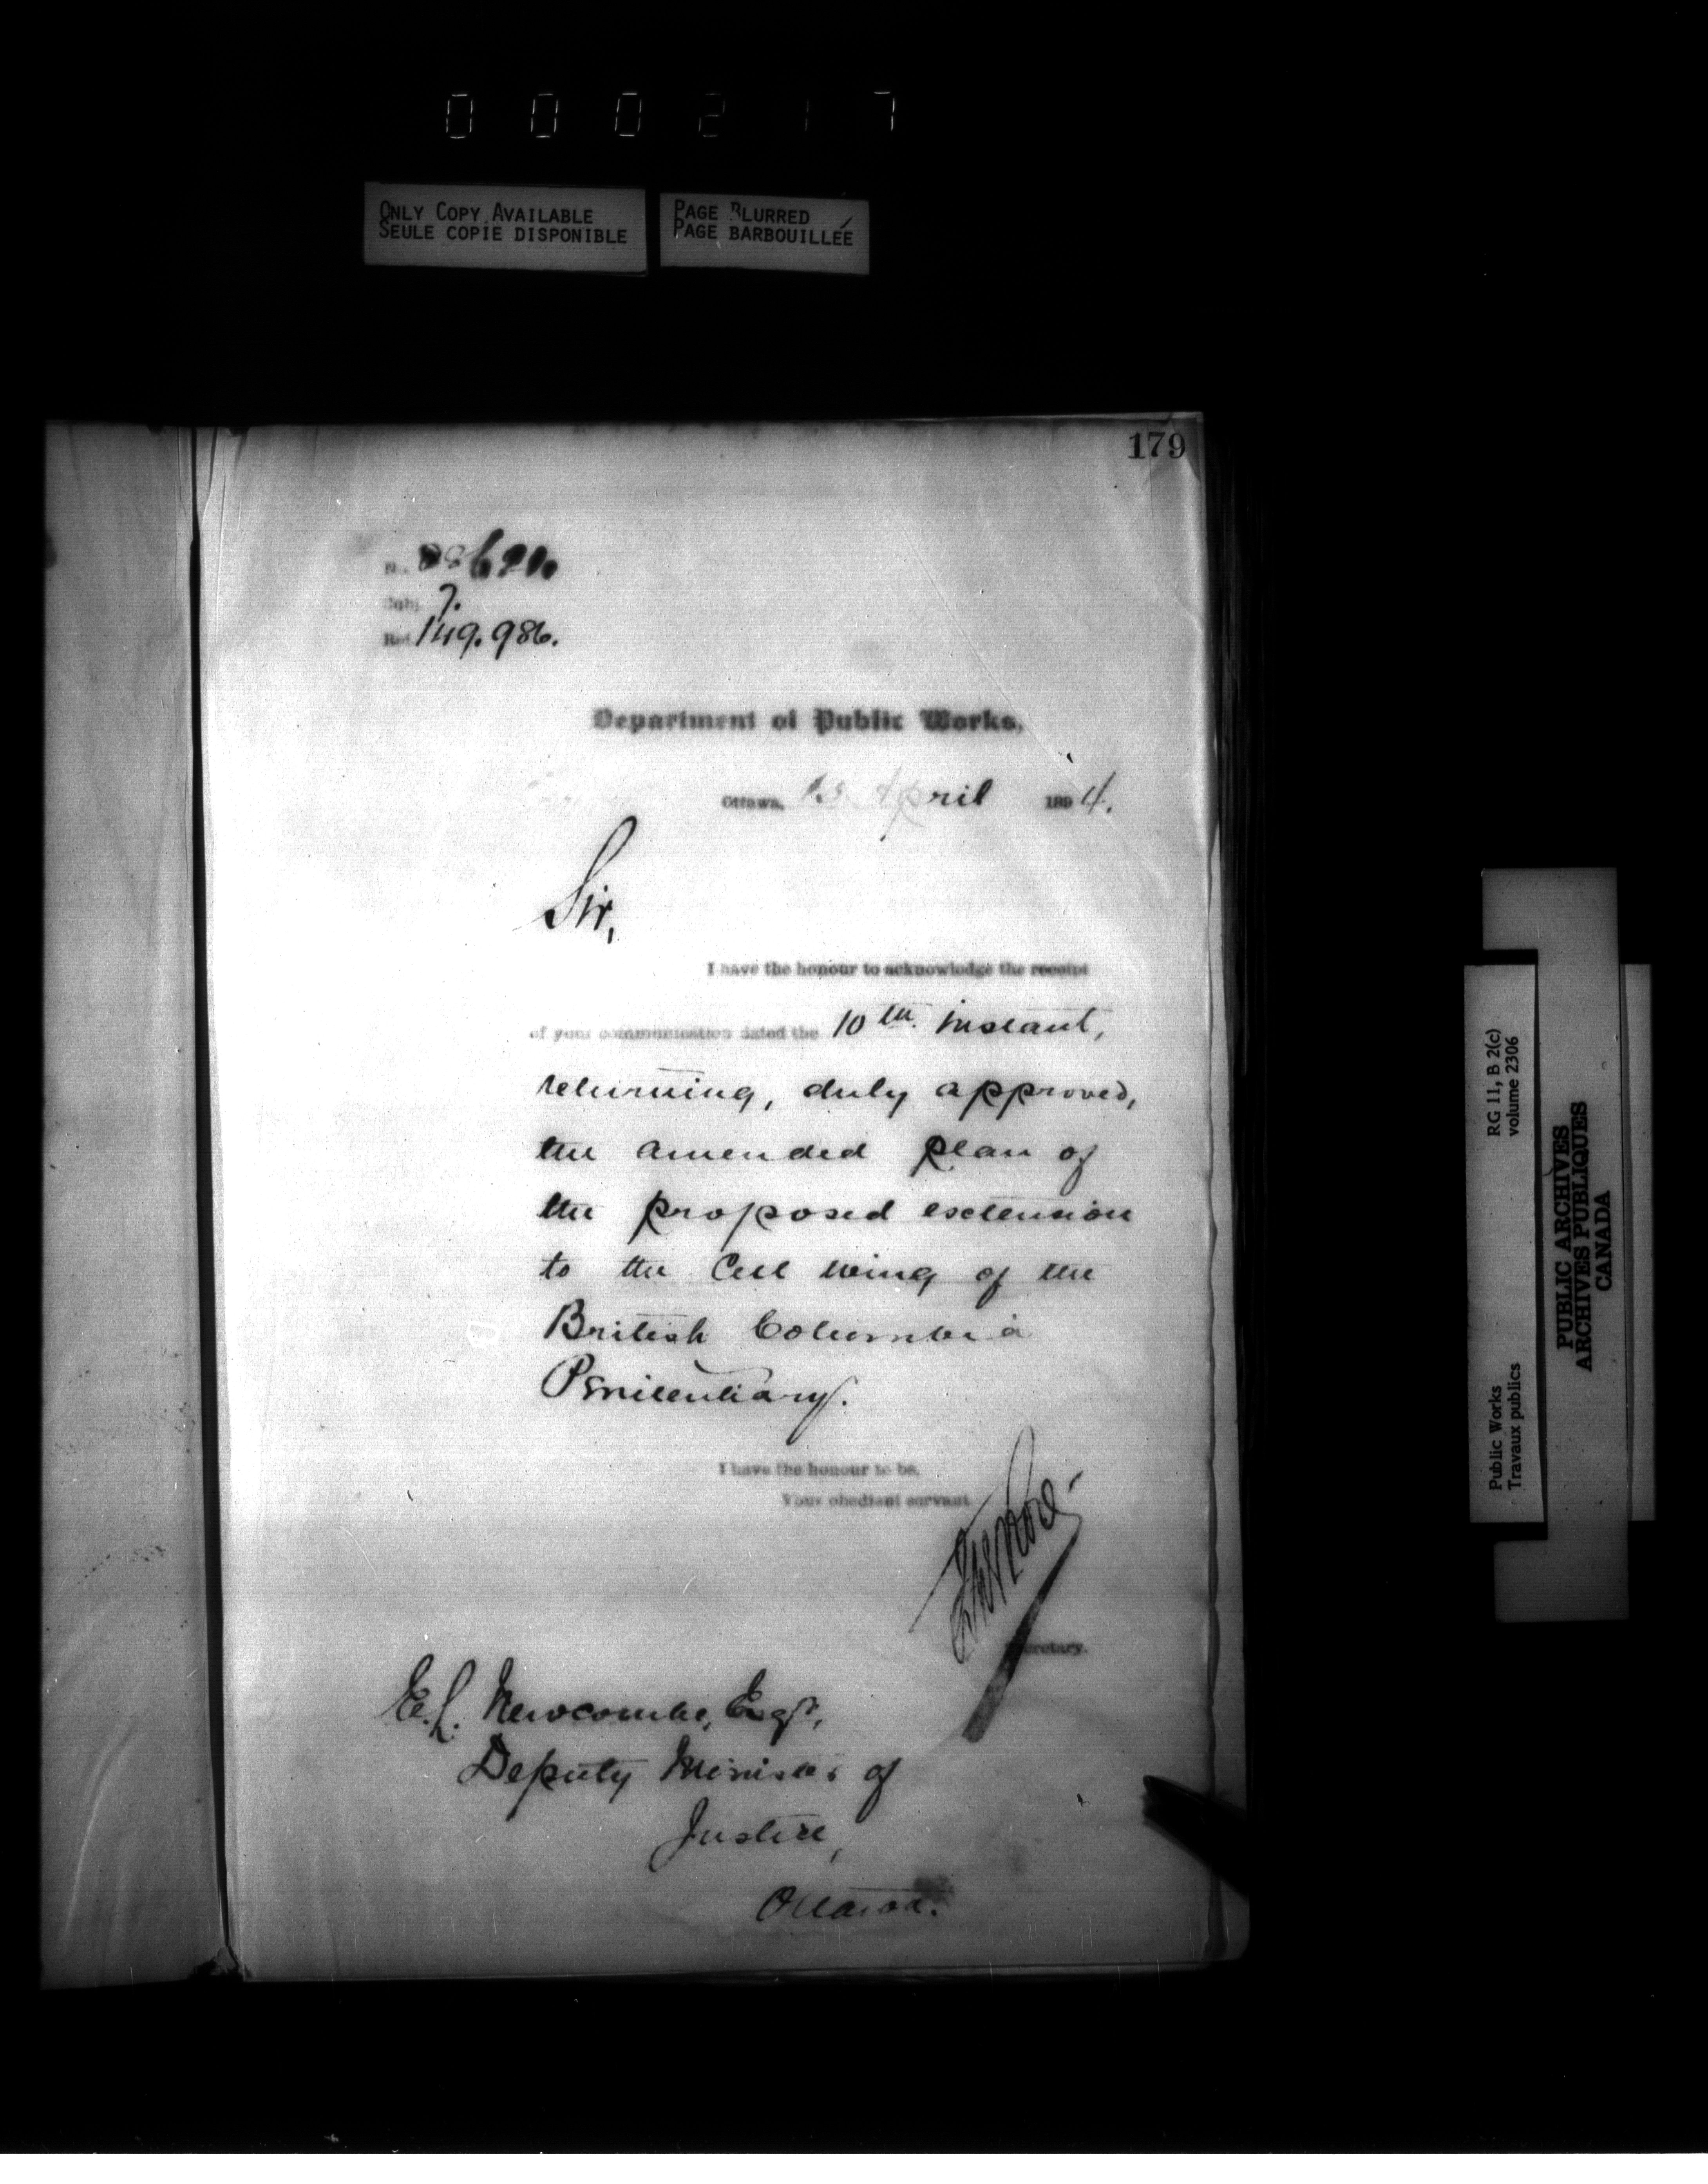 000217
ONLY COPY AVAILABLE
SEULE COPIE DISPONIBLE
PAGE BLURRED
PAGE BARBOUILLÉE
179
No.
Subj. 7.
Ref. 149.986.
Department of Public Works.
Ottawa, April 1894.
Sir,
I have the honour to acknowledge the receipt
of your communication dated the 10th instant,
returning, duly approved,
the amended plan of
the proposed extension
to the Cell wing of the
British Columbia
Penitentiary.
I have the honour to be,
Your obedient servant
Secretary.
E.L. Newcombe, Esqr,
Deputy Minister of
Justice,
Ottawa.
RG 11, B 2(c)
volume 2306
Public Works
Travaux publics
PUBLIC ARCHIVES
ARCHIVES PUBLIQUES
CANADA